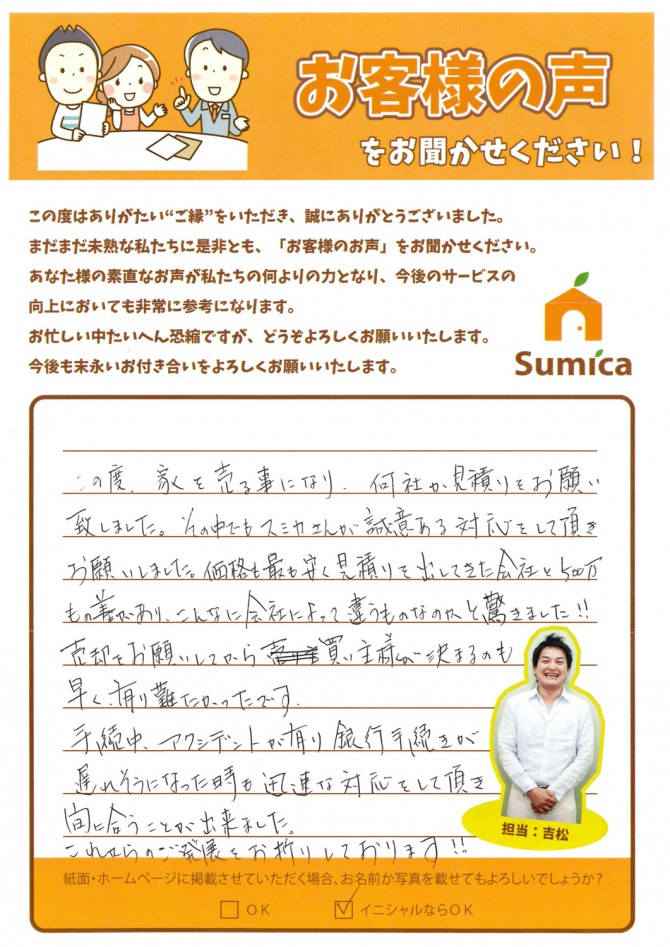 お客様の声
をお聞かせください！
この度はありがたい“ご縁”をいただき、誠にありがとうございました。
まだまだ未熟な私たちに是非とも、「お客様のお声」をお聞かせください。
あなた様の素直なお声が私たちの何よりの力となり、今後のサービスの
向上においても非常に参考になります。
お忙しい中たいへん恐縮ですが、どうぞよろしくお願いいたします。
今後も末永いお付き合いをよろしくお願いいたします。
Sumica
この度、家を売る事になり、何社か見積りをお願い
致しました。その中でもスミカさんが誠意ある対応をして頂き
お願いしました。価格も最も安く見積りを出してきた会社と500万
もの差があり、こんなに会社によって違うものなのかと驚きました!!
売却をお願いしてから買い主様が決まるのも
早く、有り難たかったです。
手続中、アクシデントが有り銀行手続きが
遅れそうになった時も迅速な対応をして頂き
間に合うことが出来ました。
これからのご発展をお祈りしております!!
担当：吉松
紙面・ホームページに掲載させていただく場合、お名前か写真を載せてもよろしいでしょうか？
□ OK ☑ イニシャルならOK